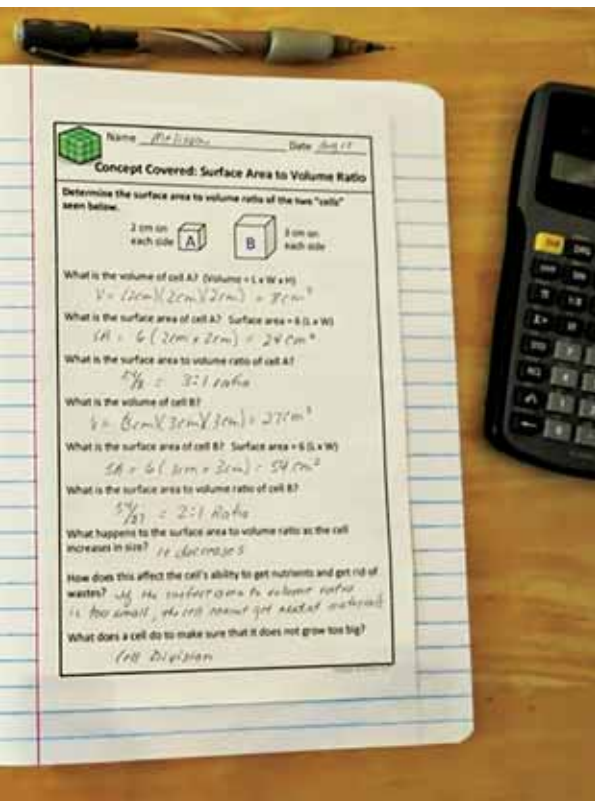 Name Melissa Date Aug 17
Concept Covered: Surface Area to Volume Ratio
Determine the surface area to volume ratio of the two "cells"
seen below.
2 cm on
each side
A
B
3 cm on
each side
What is the volume of cell A? (Volume = L x W x H)
V = (2cm)(2cm)(2cm) = 8cm³
What is the surface area of cell A? Surface area = 6 (L x W)
SA = 6 (2cm x 2cm) = 24 cm²
What is the surface area to volume ratio of cell A?
24/8 = 3:1 ratio
What is the volume of cell B?
V = (3cm)(3cm)(3cm) = 27cm³
What is the surface area of cell B? Surface area = 6 (L x W)
SA = 6 (3cm x 3cm) = 54 cm²
What is the surface area to volume ratio of cell B?
54/27 = 2:1 Ratio
What happens to the surface area to volume ratio as the cell
increases in size? it decreases
How does this affect the cell's ability to get nutrients and get rid of
wastes? If the surface area to volume ratio
is too small, the cell cannot get needed materials
What does a cell do to make sure that it does not grow too big?
Cell Division